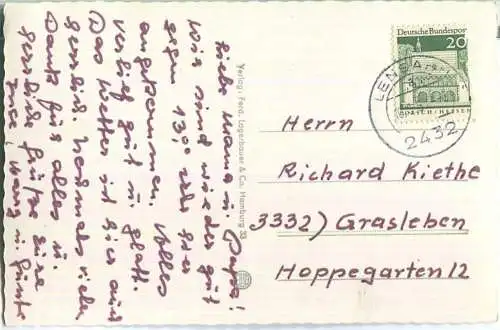 Liebe Mama u. Papa!
Wir sind wieder gut
gegen 13°° Uhr hier
angekommen. Alles
verlief gut u. glatt.
Das Wetter ist hier auch
herrlich. Nochmals vielen
Dank für alles u.
herzliche Grüße Eure
Verlag: Ferd. Lagerbauer & Co, Hamburg 33
Deutsche Bundespost
20
LORSCH/HESSEN
LENSAHN
2432
Herrn
Richard Kiethe
3332) Grasleben
Hoppegarten 12